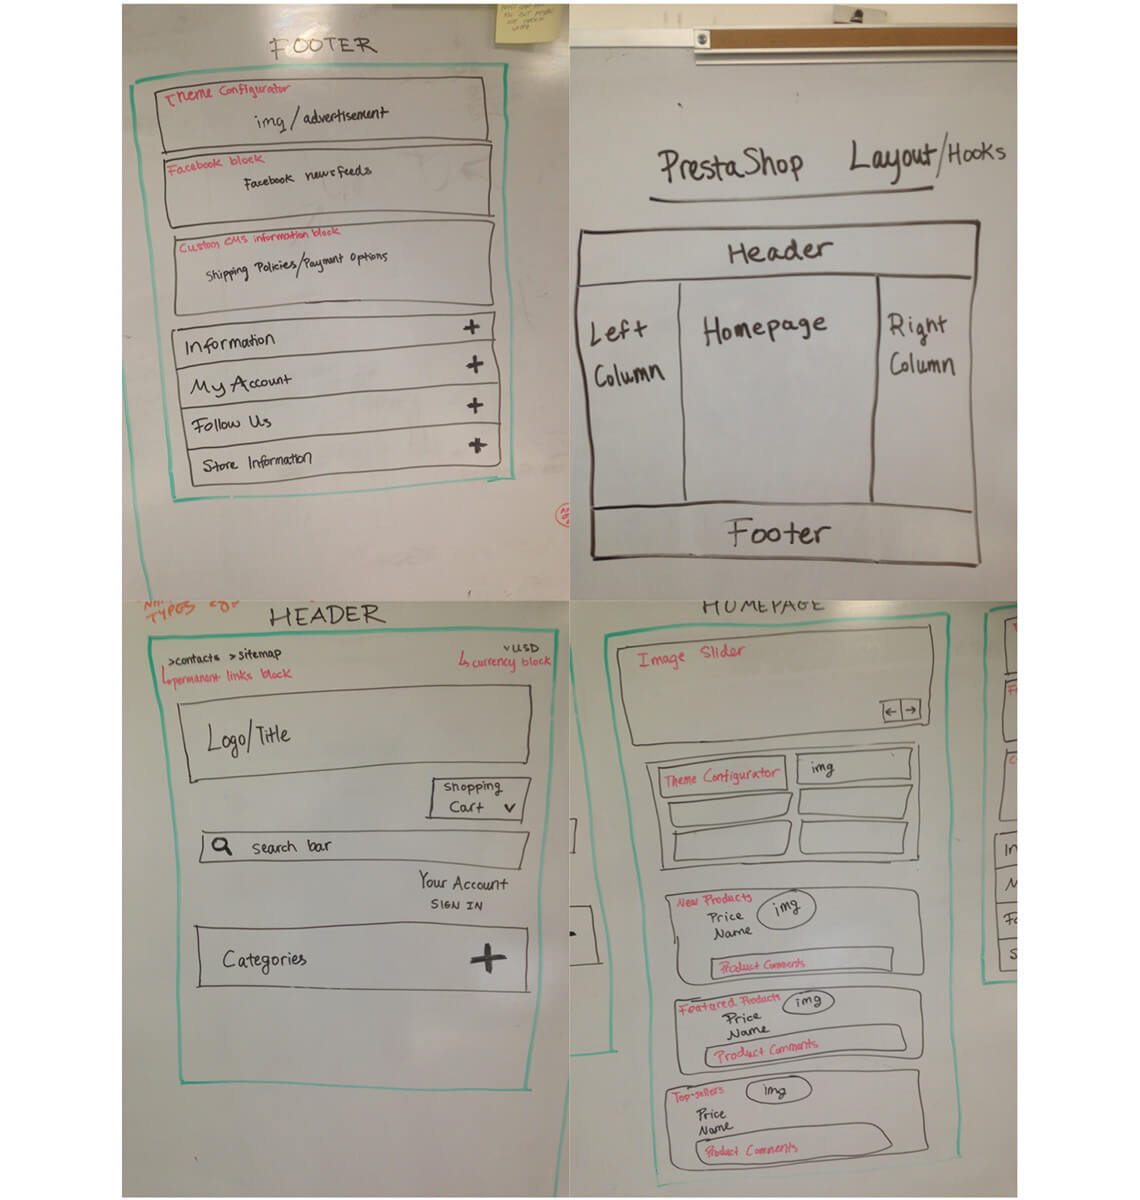 FOOTER
Theme Configurator
img/advertisement
Facebook block
Facebook newsfeeds
Custom CMS information block
Shipping Policies/Payment Options
Information +
My Account +
Follow Us +
Store Information +
PrestaShop Layout/Hooks
Header
Left
Column
Homepage
Right
Column
Footer
TYPES
HEADER
>contacts >sitemap
permanent links block
v USD
currency block
Logo/Title
Shopping
Cart v
search bar
Your Account
SIGN IN
Categories +
HOMEPAGE
Image Slider
← →
Theme Configurator
img
New Products
img
Price
Name
Product Comments
Featured Products
img
Price
Name
Product Comments
Top-sellers
img
Price
Name
Product Comments
In
M
Fo
S